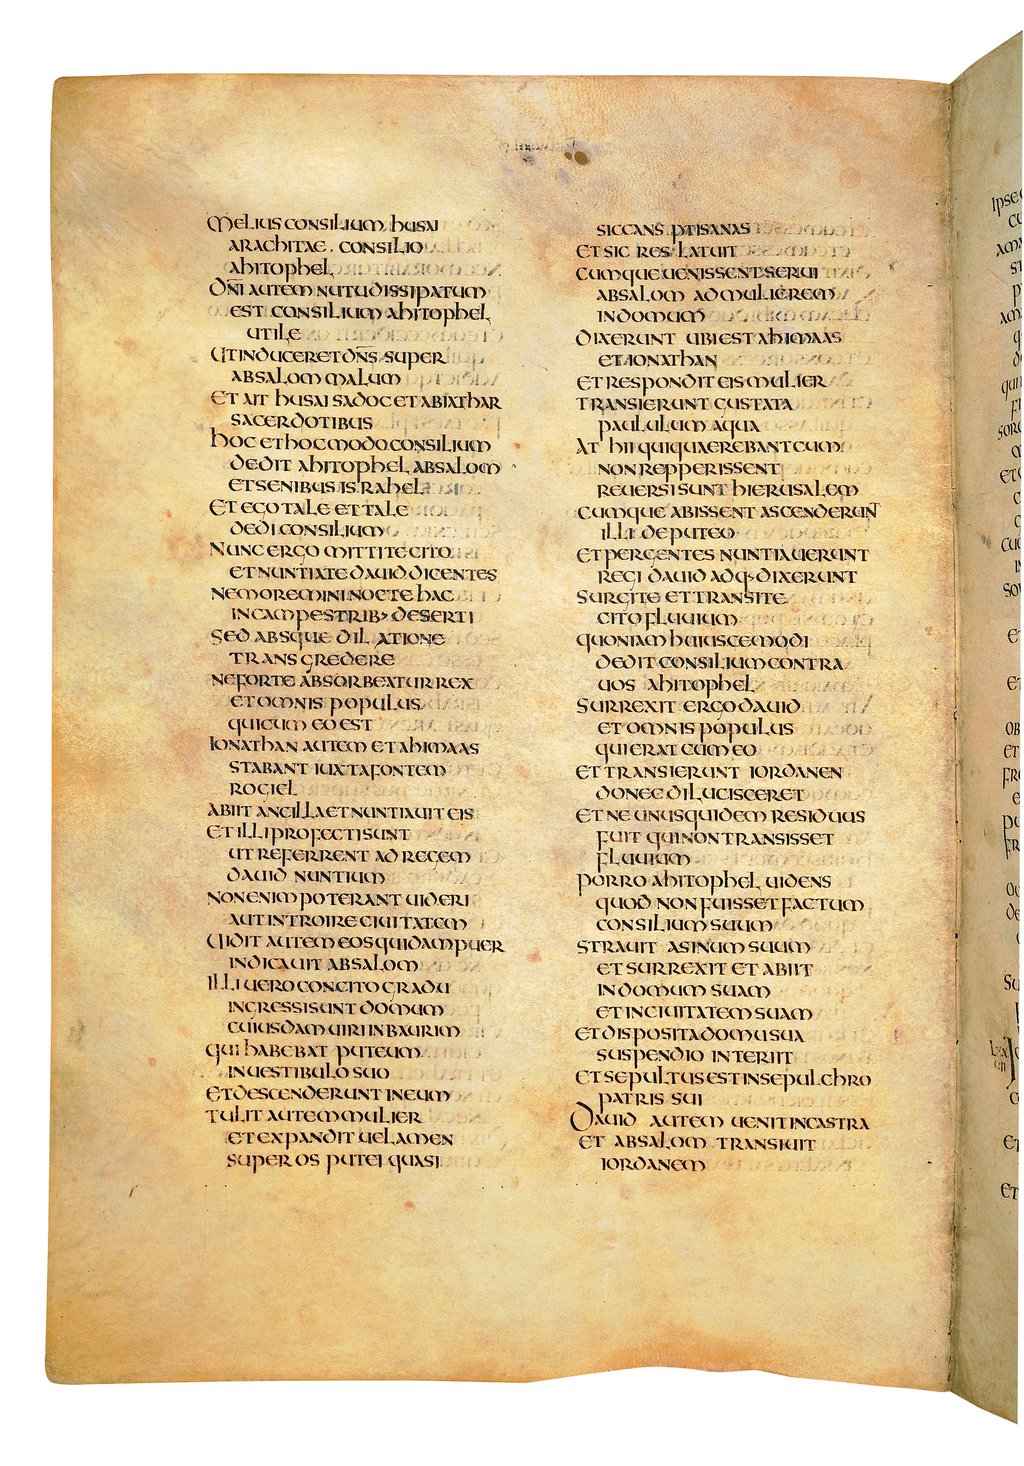 MELIUS CONSILIUM HUSAI
ARACHITAE CONSILIO
AHITOPHEL
DNI AUTEM NUTU DISSIPATUM
EST CONSILIUM AHITOPHEL
UTILE
UT INDUCERET DNS SUPER
ABSALOM MALUM
ET AIT HUSAI SADOC ET ABIATHAR
SACERDOTIBUS
HOC ET HOC MODO CONSILIUM
DEDIT AHITOPHEL ABSALOM
ET SENIBUS ISRAHEL
ET EGO TALE ET TALE
DEDI CONSILIUM
NUNC ERGO MITTITE CITO
ET NUNTIATE DAUID DICENTES
NE MOREMINI NOCTE HAC
IN CAMPESTRIB· DESERTI
SED ABSQUE DILATIONE
TRANSGREDERE
NE FORTE ABSORBEATUR REX
ET OMNIS POPULUS
QUI CUM EO EST
IONATHAN AUTEM ET AHIMAAS
STABANT IUXTA FONTEM
ROGEL
ABIIT ANCILLA ET NUNTIAUIT EIS
ET ILLI PROFECTI SUNT
UT REFERRENT AD REGEM
DAUID NUNTIUM
NON ENIM POTERANT UIDERI
AUT INTROIRE CIUITATEM
UIDIT AUTEM EOS QUIDAM PUER
INDICAUIT ABSALOM
ILLI UERO CONCITO GRADU
INGRESSI SUNT DOMUM
CUIUSDAM UIRI IN BAURIM
QUI HABEBAT PUTEUM
IN UESTIBULO SUO
ET DESCENDERUNT IN EUM
TULIT AUTEM MULIER
ET EXPANDIT UELAMEN
SUPER OS PUTEI QUASI
SICCANS PTISANAS
ET SIC RES LATUIT
CUMQUE UENISSENT SERUI
ABSALOM AD MULIEREM
IN DOMUM
DIXERUNT UBI EST AHIMAAS
ET IONATHAN
ET RESPONDIT EIS MULIER
TRANSIERUNT GUSTATA
PAULULUM AQUA
AT HII QUI QUAEREBANT CUM
NON REPPERISSENT
REUERSI SUNT HIERUSALEM
CUMQUE ABISSENT ASCENDERUN̄
ILLI DE PUTEO
ET PERGENTES NUNTIAUERUNT
REGI DAUID ADQ· DIXERUNT
SURGITE ET TRANSITE
CITO FLUUIUM
QUONIAM HUIUSCEMODI
DEDIT CONSILIUM CONTRA
UOS AHITOPHEL
SURREXIT ERGO DAUID
ET OMNIS POPULUS
QUI ERAT CUM EO
ET TRANSIERUNT IORDANEN
DONEC DILUCISCERET
ET NE UNUS QUIDEM RESIDUUS
FUIT QUI NON TRANSISSET
FLUUIUM
PORRO AHITOPHEL UIDENS
QUOD NON FUISSET FACTUM
CONSILIUM SUUM
STRAUIT ASINUM SUUM
ET SURREXIT ET ABIIT
IN DOMUM SUAM
ET IN CIUITATEM SUAM
ET DISPOSITA DOMU SUA
SUSPENDIO INTERIIT
ET SEPULTUS EST IN SEPULCHRO
PATRIS SUI
DAUID AUTEM UENIT IN CASTRA
ET ABSALOM TRANSIUIT
IORDANEM